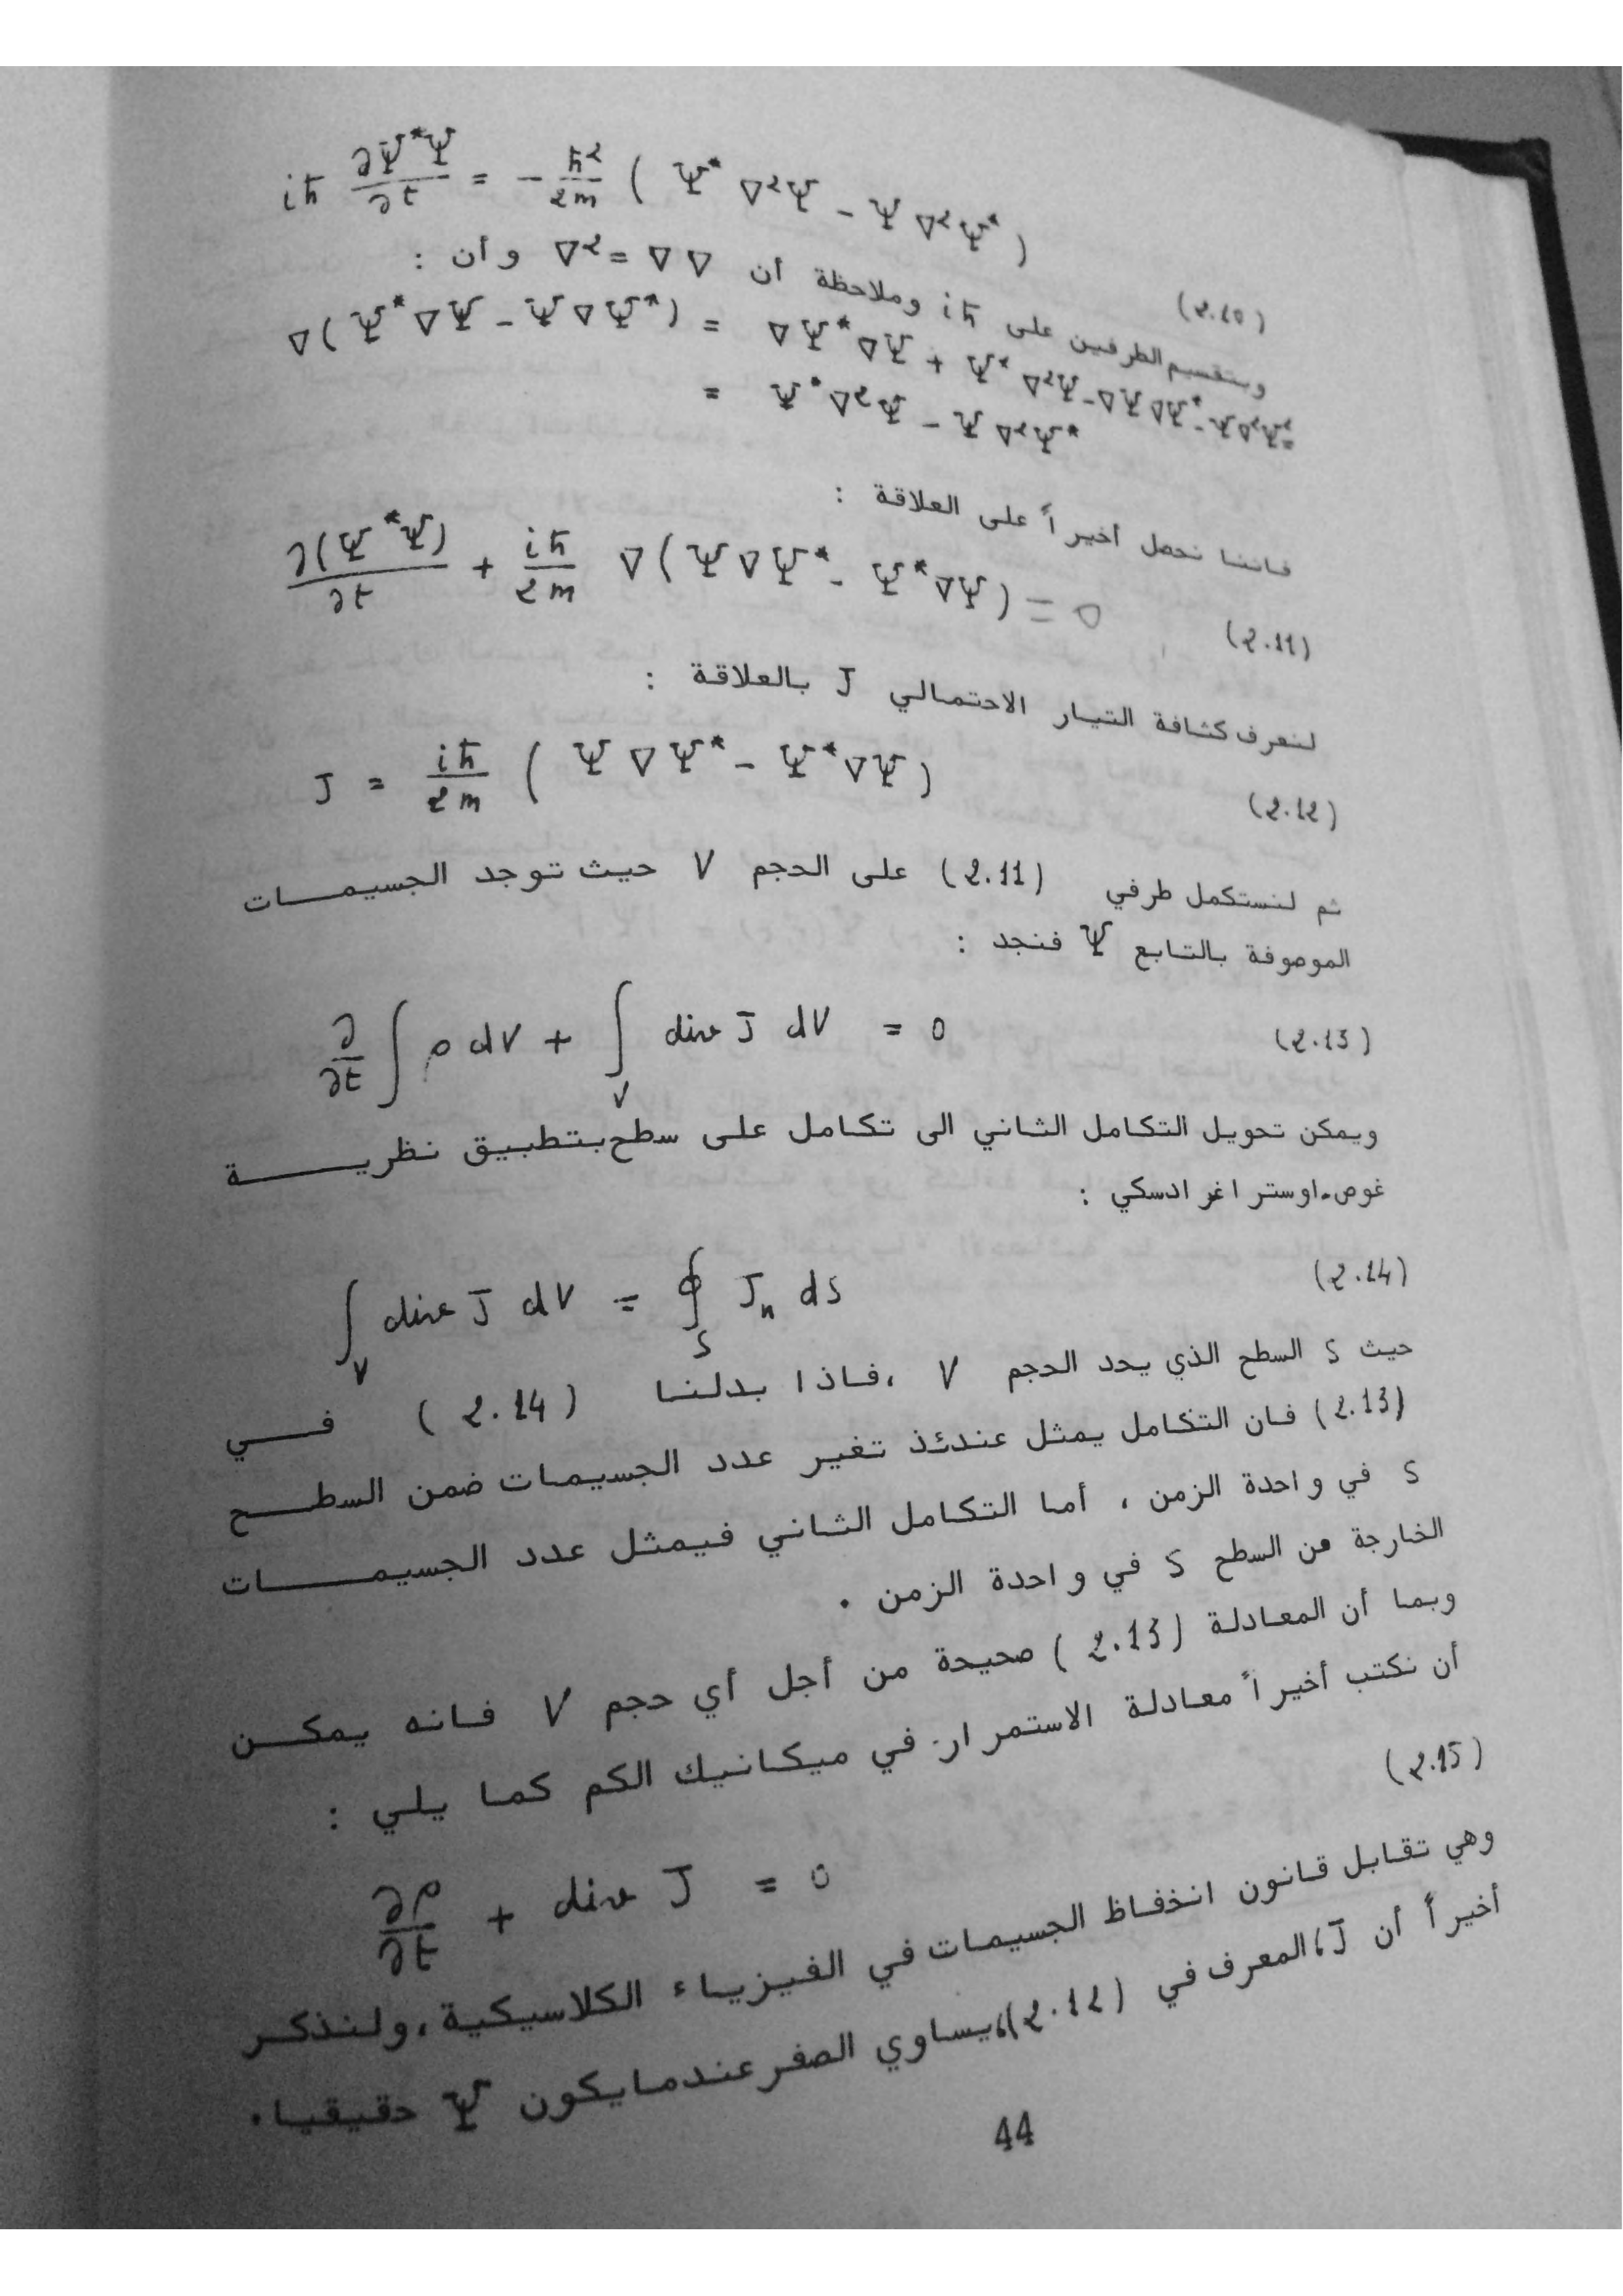 iħ ∂Ψ*Ψ/∂t = - ħ²/2m ( Ψ* ∇²Ψ - Ψ ∇²Ψ* )
(2.10)
وبتقسيم الطرفين على iħ وملاحظة أن ∇²=∇∇ وأن :
∇(Ψ*∇Ψ - Ψ∇Ψ*) = ∇Ψ*∇Ψ + Ψ*∇²Ψ-∇Ψ∇Ψ*-Ψ∇²Ψ*=
= Ψ*∇²Ψ - Ψ∇²Ψ*
فاننا نحصل أخيراً على العلاقة :
∂(Ψ*Ψ)/∂t + iħ/2m ∇(Ψ∇Ψ* - Ψ*∇Ψ) = 0
(2.11)
لنعرف كثافة التيار الاحتمالي J بالعلاقة :
J = iħ/2m ( Ψ∇Ψ* - Ψ*∇Ψ )
(2.12)
ثم لنستكمل طرفي (2.11) على الحجم V حيث توجد الجسيمات
الموصوفة بالتابع Ψ فنجد :
∂/∂t ∫ ρ dV + ∫_V div J dV = 0
(2.13)
ويمكن تحويل التكامل الثاني الى تكامل على سطح بتطبيق نظرية
غوص-اوستراغرادسكي :
∫_V div J dV = ∮_S J_n dS
(2.14)
حيث S السطح الذي يحد الحجم V ،فاذا بدلنا (2.14) في
(2.13) فان التكامل يمثل عندئذ تغير عدد الجسيمات ضمن السطح
S في واحدة الزمن ، أما التكامل الثاني فيمثل عدد الجسيمات
الخارجة من السطح S في واحدة الزمن .
وبما أن المعادلة (2.13) صحيحة من أجل أي حجم V فانه يمكن
أن نكتب أخيراً معادلة الاستمرار في ميكانيك الكم كما يلي :
(2.15)
∂ρ/∂t + div J = 0
وهي تقابل قانون انخفاظ الجسيمات في الفيزياء الكلاسيكية،ولنذكر
أخيراً أن J،المعرف في (2.12)،يساوي الصفر عندما يكون Ψ حقيقيا.
44